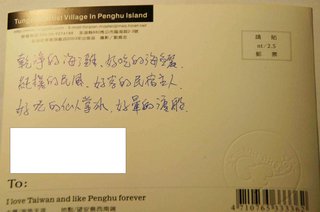 Tung Artist Village In Penghu Island
請 貼
nt/2.5
郵 票
乾淨的海灘、好吃的海產、
純樸的民風、好客的民宿主人、
好吃的仙人掌冰、好暈的渡船
To:
I love Taiwan and like Penghu forever
4 710765 133362